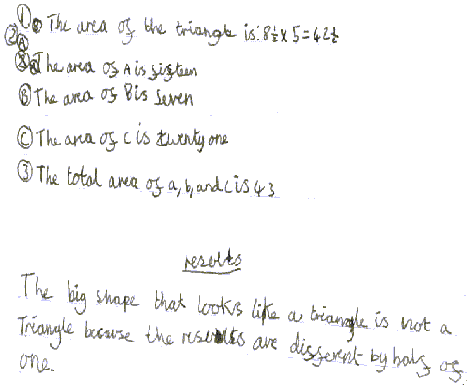 ① The area of the triangle is: 8½ x 5 = 42½
② Ⓐ The area of A is sixteen
Ⓑ The area of B is Seven
Ⓒ The area of C is twenty one
③ The total area of a, b, and c is 43
results
The big shape that looks like a triangle is not a
Triangle because the results are different by half of
one.